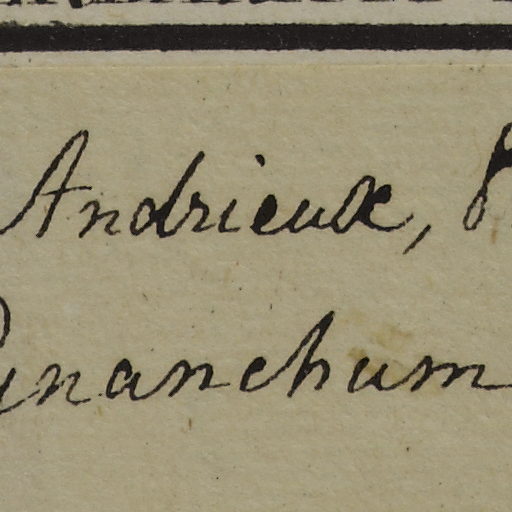 Andrieux,
Cynanchum